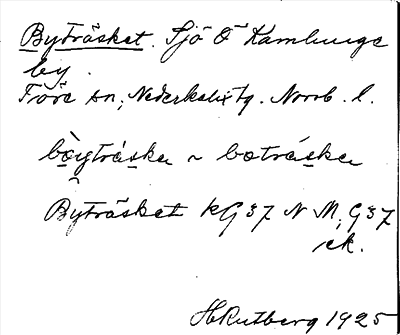 Byträsket. Sjö Ö Kamlunge
by.
Töre sn, Nederkalix tg. Norrb. l.
bo̬ytráskə ~ bətráskə
Byträsket kG37 N M, G37
ek.
HRutberg 1925